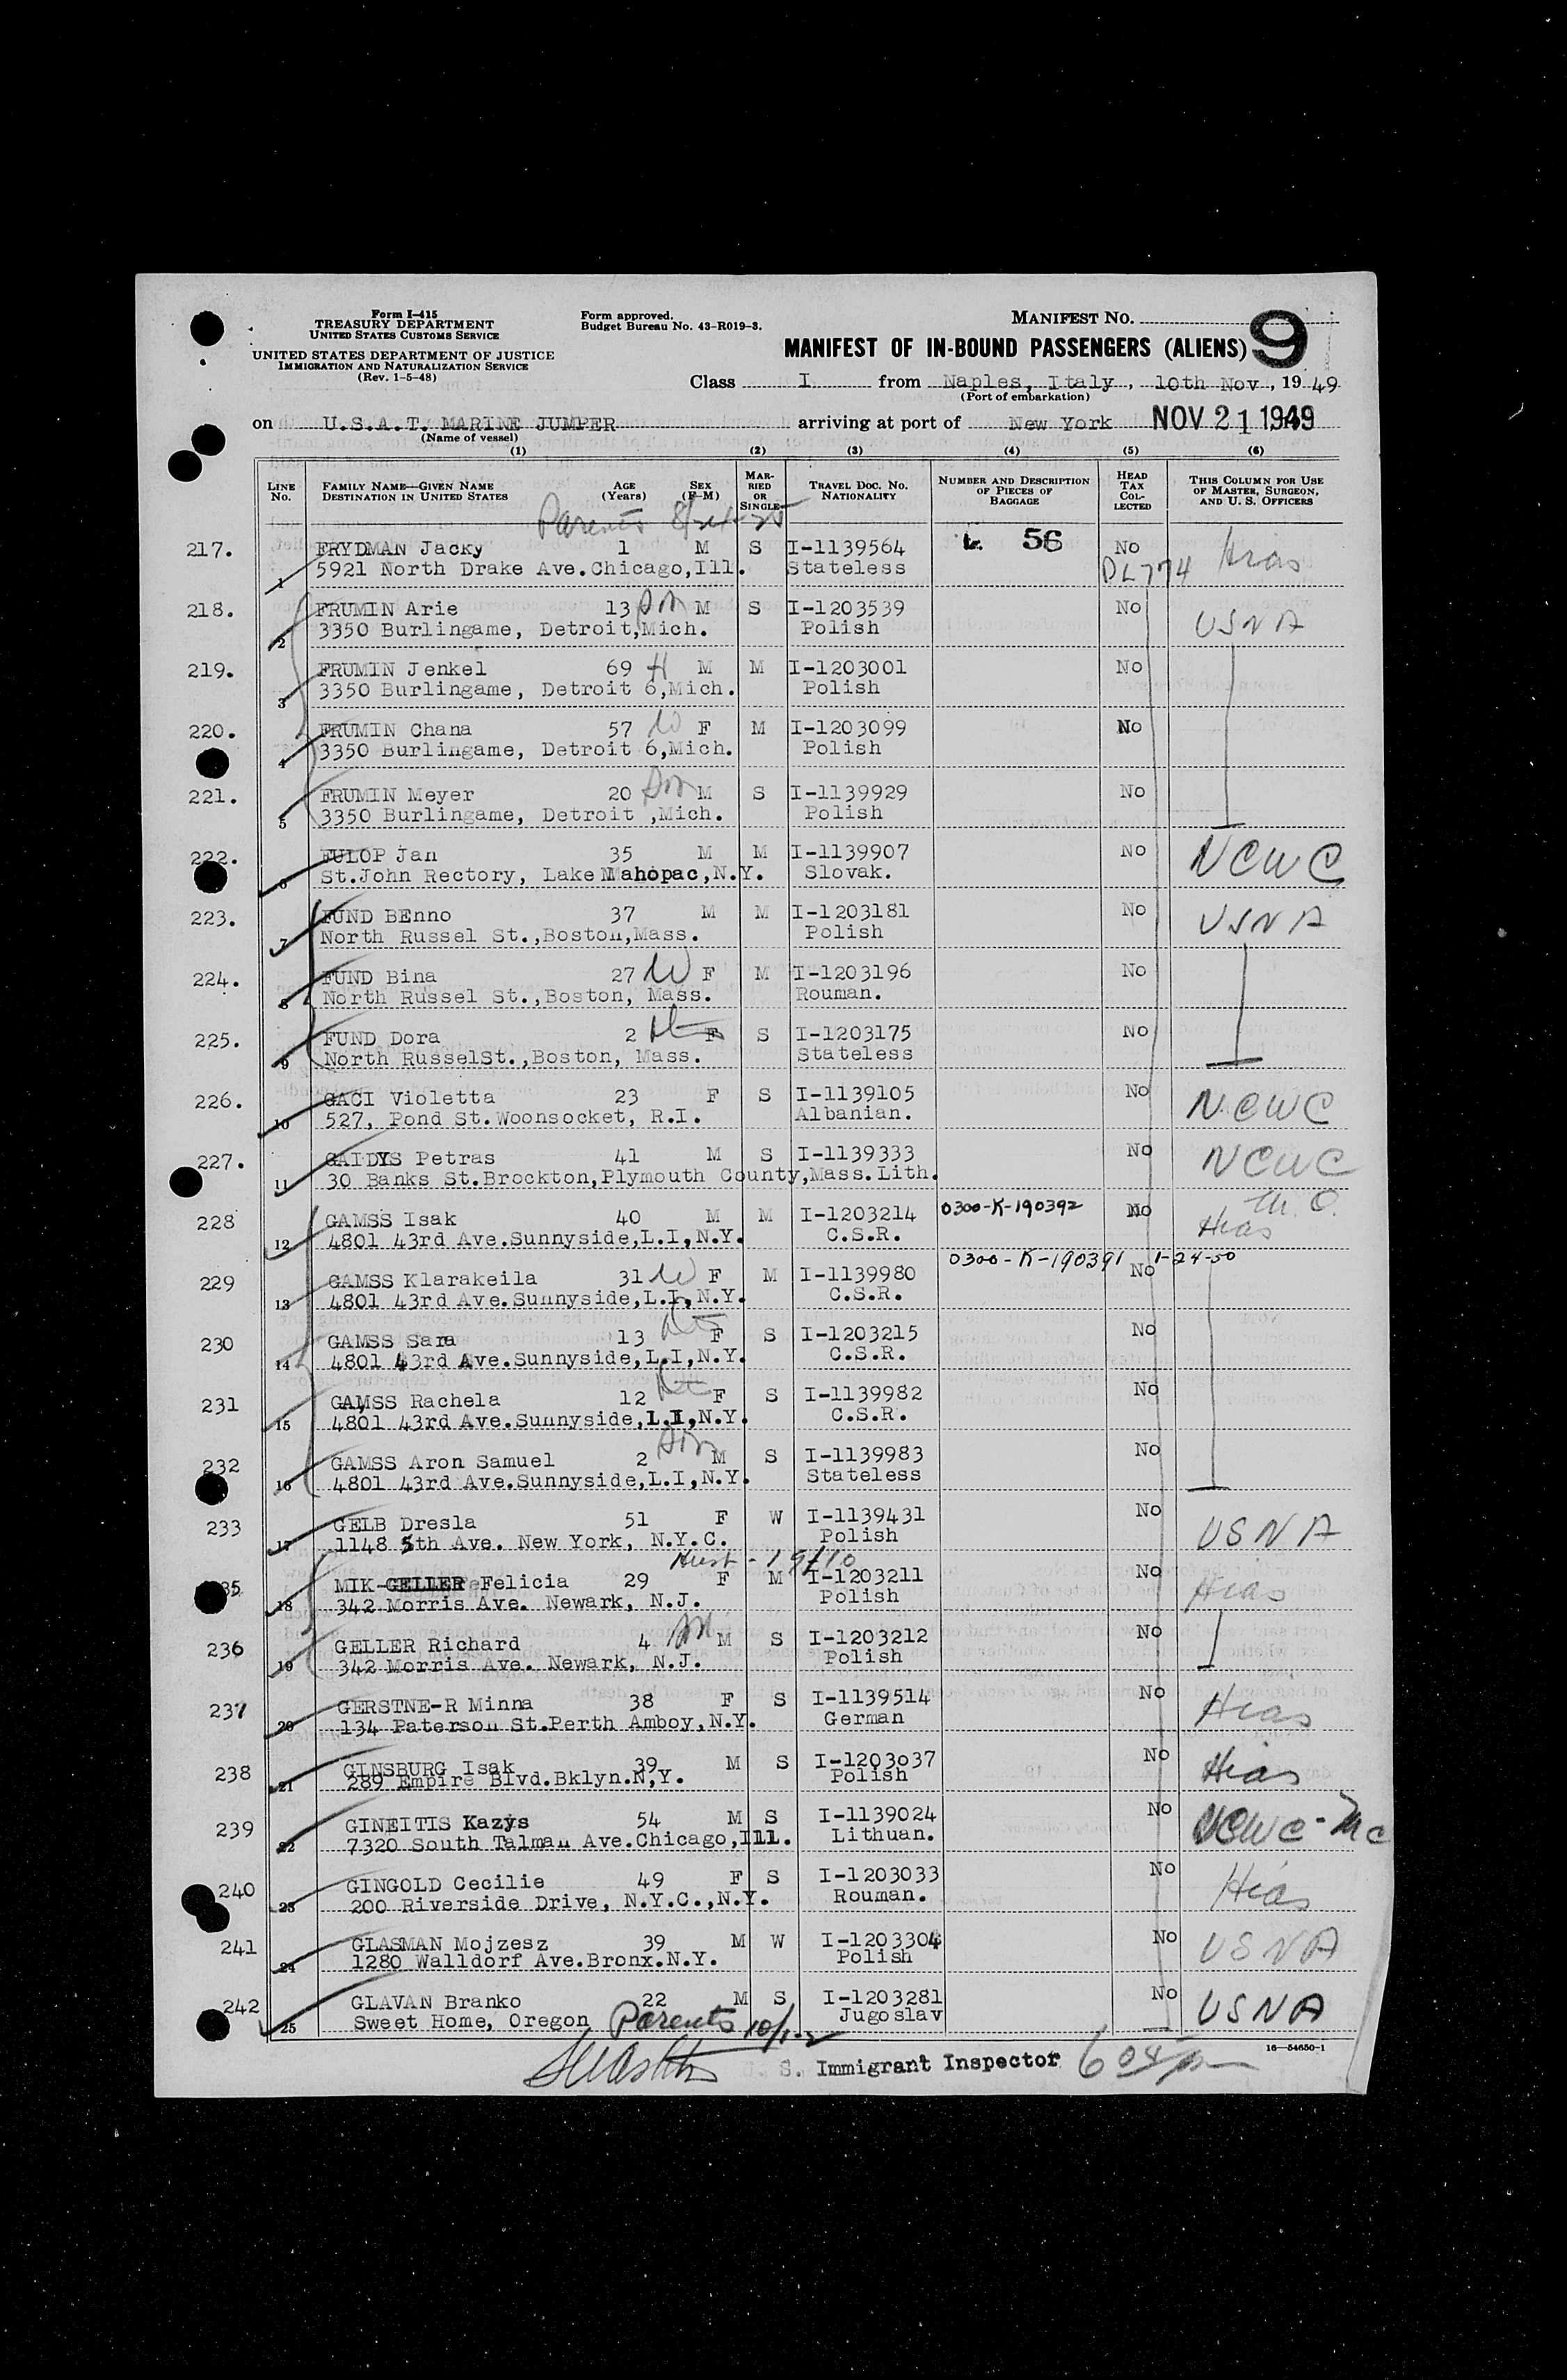 Form I-415
TREASURY DEPARTMENT
UNITED STATES CUSTOMS SERVICE
UNITED STATES DEPARTMENT OF JUSTICE
IMMIGRATION AND NATURALIZATION SERVICE
(Rev. 1-5-48)
Form approved.
Budget Bureau No. 43-R019-3.
MANIFEST NO. 9
MANIFEST OF IN-BOUND PASSENGERS (ALIENS)
Class I from Naples, Italy, 10th Nov, 1949
(Port of embarkation)
on U.S.A.T. MARINE JUMPER arriving at port of New York NOV 21 1949
(Name of vessel)
(1) (2) (3) (4) (5) (6)
LINE NO. FAMILY NAME—GIVEN NAME DESTINATION IN UNITED STATES AGE (Years) SEX (F-M) MARRIED OR SINGLE TRAVEL DOC. NO. NATIONALITY NUMBER AND DESCRIPTION OF PIECES OF BAGGAGE HEAD TAX COLLECTED THIS COLUMN FOR USE OF MASTER, SURGEON, AND U. S. OFFICERS
Parents
217. FRYDMAN Jacky 1 M S I-1139564 56 No Hias
1 5921 North Drake Ave.Chicago,Ill. Stateless DL774
218. FRUMIN Arie 13 son M S I-1203539 No USNA
2 3350 Burlingame, Detroit,Mich. Polish
219. FRUMIN Jenkel 69 H M M I-1203001 No
3 3350 Burlingame, Detroit 6,Mich. Polish
220. FRUMIN Chana 57 W F M I-1203099 No
4 3350 Burlingame, Detroit 6,Mich. Polish
221. FRUMIN Meyer 20 son M S I-1139929 No
5 3350 Burlingame, Detroit ,Mich. Polish
222. FULOP Jan 35 M M I-1139907 No NCWC
6 St.John Rectory, Lake Mahopac,N.Y. Slovak.
223. FUND BEnno 37 M M I-1203181 No USNA
7 North Russel St.,Boston,Mass. Polish
224. FUND Bina 27 W F M I-1203196 No
8 North Russel St.,Boston, Mass. Rouman.
225. FUND Dora 2 F S I-1203175 No
9 North RusselSt.,Boston, Mass. Stateless
226. GACI Violetta 23 F S I-1139105 No NCWC
10 527, Pond St.Woonsocket, R.I. Albanian.
227. GAIDYS Petras 41 M S I-1139333 No NCWC
11 30 Banks St.Brockton,Plymouth County,Mass.Lith.
228 GAMSS Isak 40 M M I-1203214 0300-K-190392 No Hias
12 4801 43rd Ave.Sunnyside,L.I,N.Y. C.S.R.
0300-K-190391 1-24-50
229 GAMSS Klarakeila 31 W F M I-1139980 No
13 4801 43rd Ave.Sunnyside,L.I,N.Y. C.S.R.
230 GAMSS Sara 13 F S I-1203215 No
14 4801 43rd Ave.Sunnyside,L.I,N.Y. C.S.R.
231 GAMSS Rachela 12 F S I-1139982 No
15 4801 43rd Ave.Sunnyside,L.I,N.Y. C.S.R.
232 GAMSS Aron Samuel 2 son M S I-1139983 No
16 4801 43rd Ave.Sunnyside,L.I,N.Y. Stateless
233 GELB Dresla 51 F W I-1139431 No USNA
17 1148 5th Ave. New York, N.Y.C. Polish
235 MIK-GELLER Felicia 29 F M I-1203211 No Hias
18 342 Morris Ave. Newark, N.J. Polish
236 GELLER Richard 4 M S I-1203212 No
19 342 Morris Ave. Newark, N.J. Polish
237 GERSTNE-R Minna 38 F S I-1139514 No Hias
20 134 Paterson St.Perth Amboy,N.Y. German
238 GINSBURG Isak 39 M S I-1203037 No Hias
21 289 Empire Blvd.Bklyn.N,Y. Polish
239 GINEITIS Kazys 54 M S I-1139024 No NCWC-Mc
22 7320 South Talman Ave.Chicago,Ill. Lithuan.
240 GINGOLD Cecilie 49 F S I-1203033 No Hias
23 200 Riverside Drive, N.Y.C.,N.Y. Rouman.
241 GLASMAN Mojzesz 39 M W I-1203304 No USNA
24 1280 Walldorf Ave.Bronx.N.Y. Polish
242 GLAVAN Branko 22 M S I-1203281 No USNA
25 Sweet Home, Oregon Parents Jugoslav
U. S. Immigrant Inspector
16—54650-1